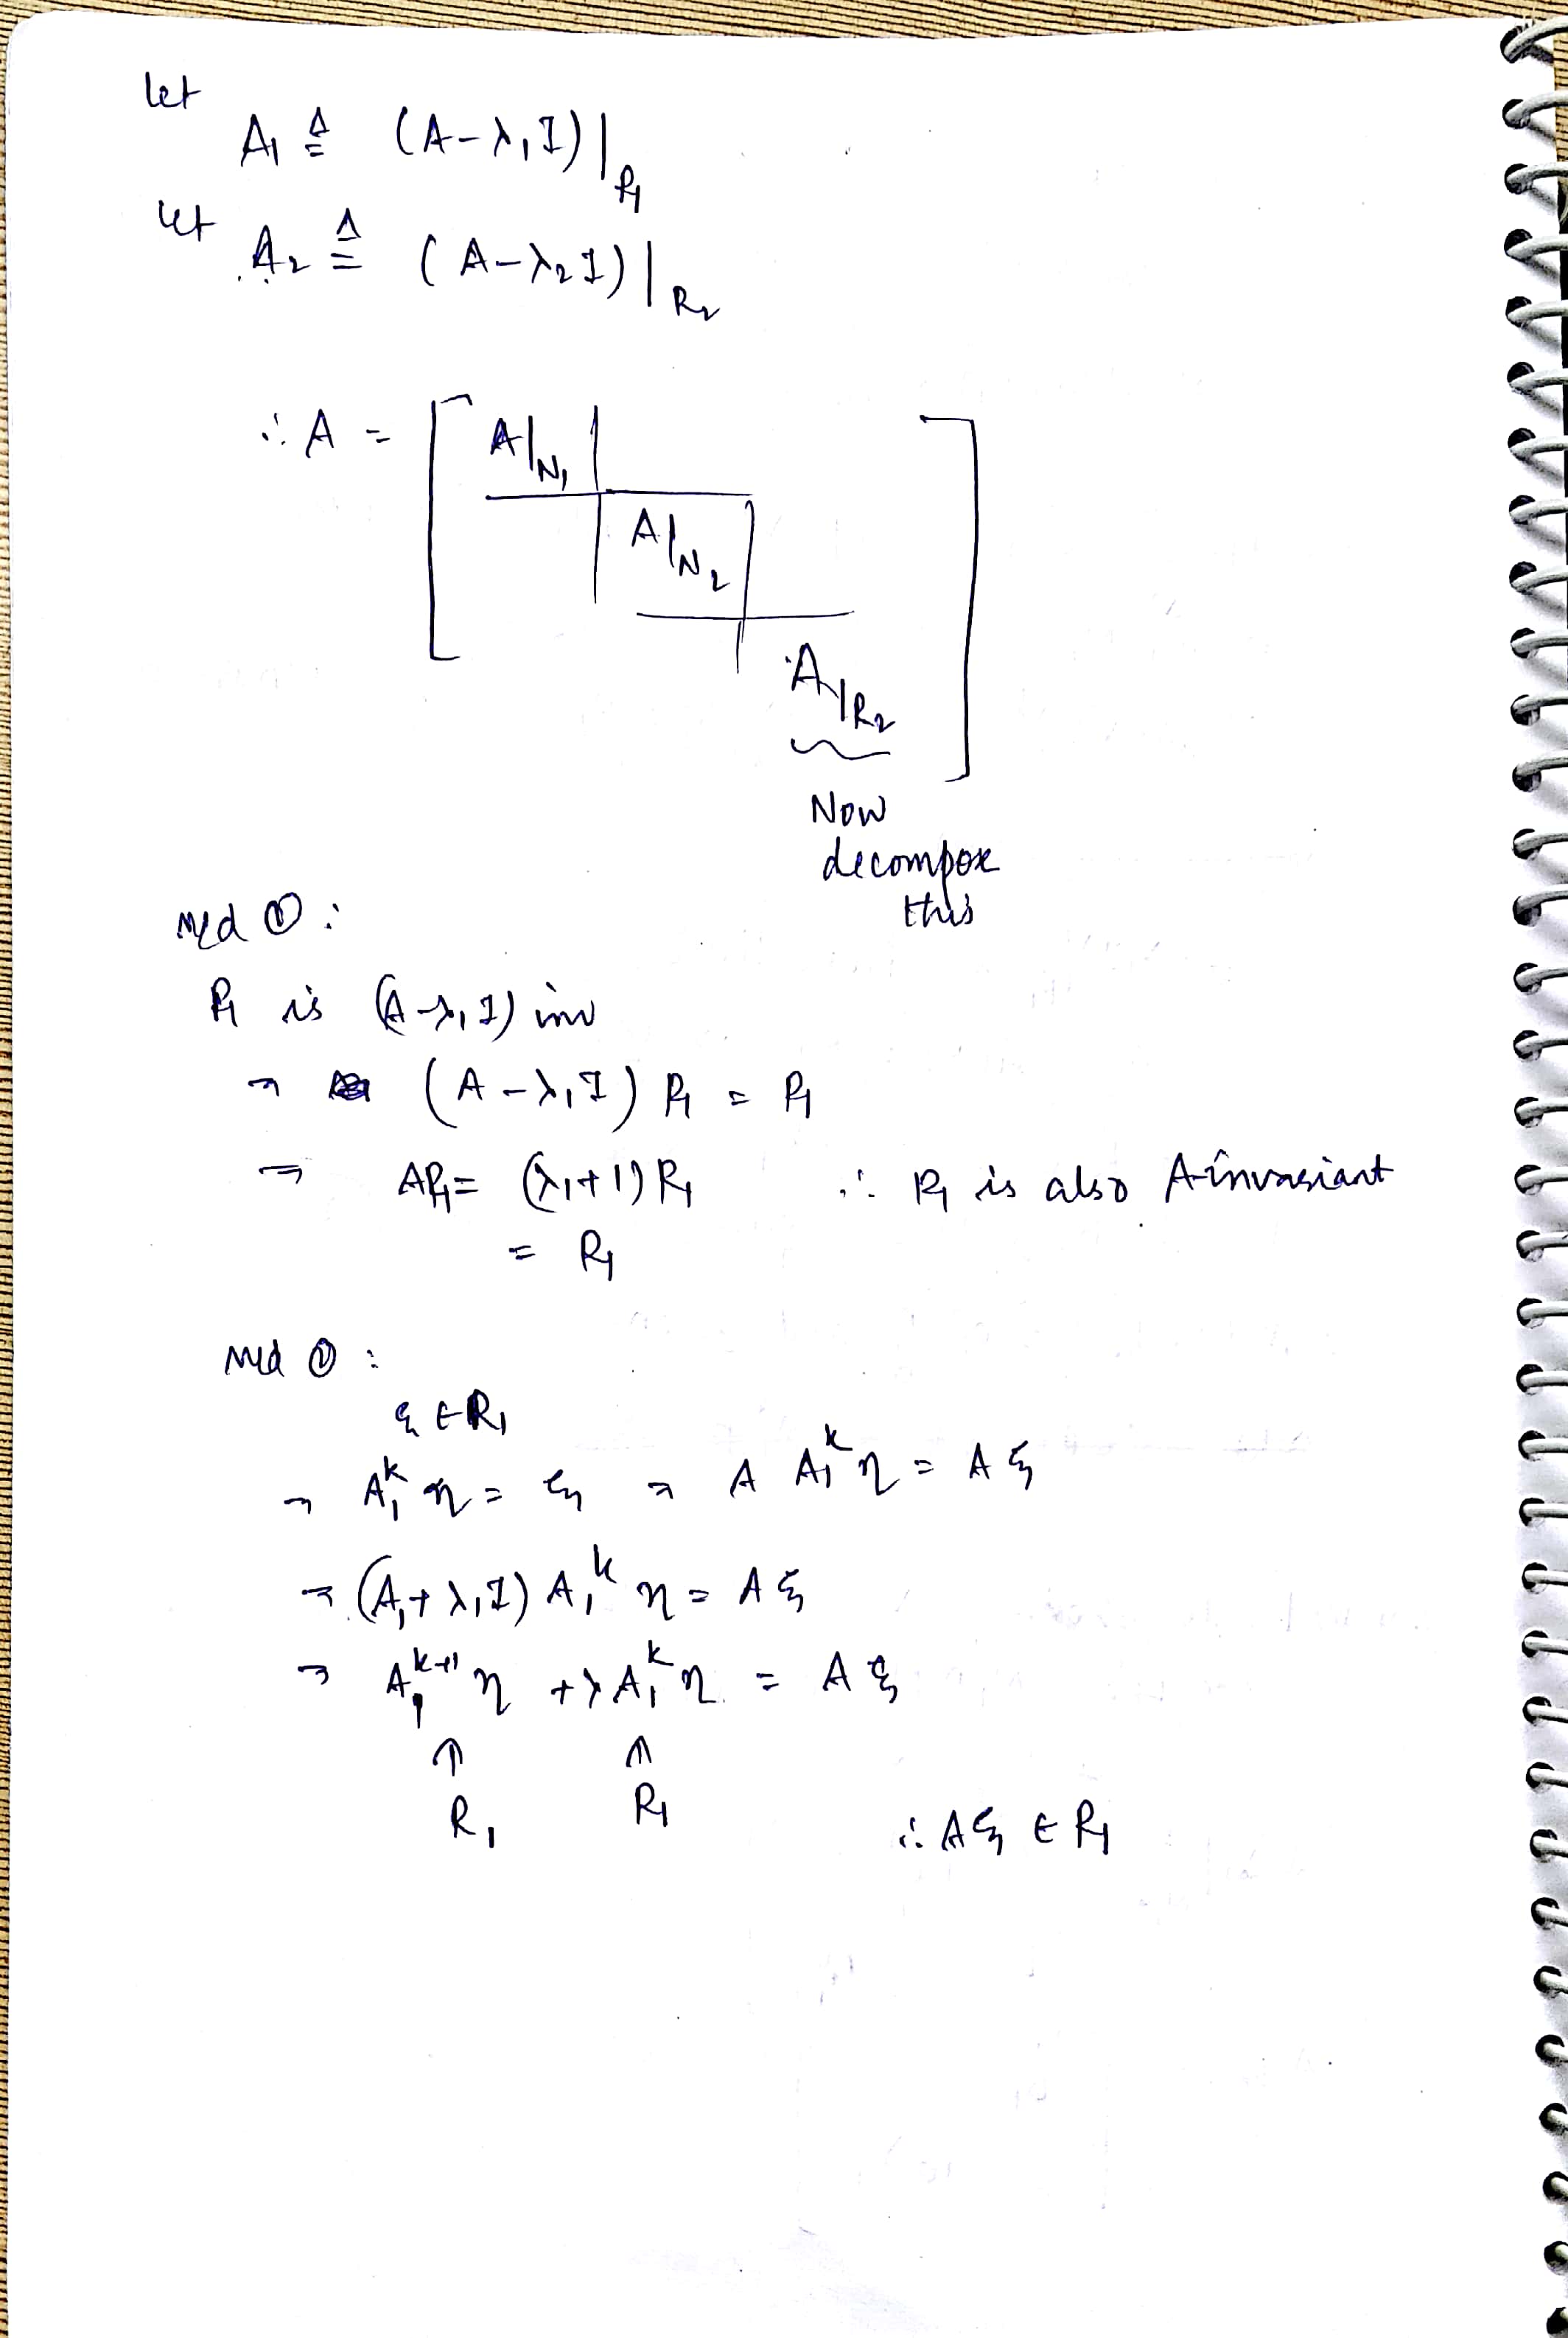 let
A₁ ≜ (A-λ₁I)|R₁
let A₂ ≜ (A-λ₂I)|R₂
∴ A = [ A|N₁
A|N₂
A|R₂ ]
Now
decompose
this
Med ① :
R₁ is (A-λ₁I) inv
⇒ (A-λ₁I) R₁ = R₁
⇒ AR₁ = (λ₁+1) R₁ ∴ R₁ is also A-invariant
= R₁
Med ② :
ξ ∈ R₁
⇒ A₁ᵏ η = ξ ⇒ A A₁ᵏ η = A ξ
⇒ (A₁+λ₁I) A₁ᵏ η = A ξ
⇒ A₁ᵏ⁺¹ η + λ A₁ᵏ η = A ξ
↑ ↑
R₁ R₁ ∴ Aξ ∈ R₁